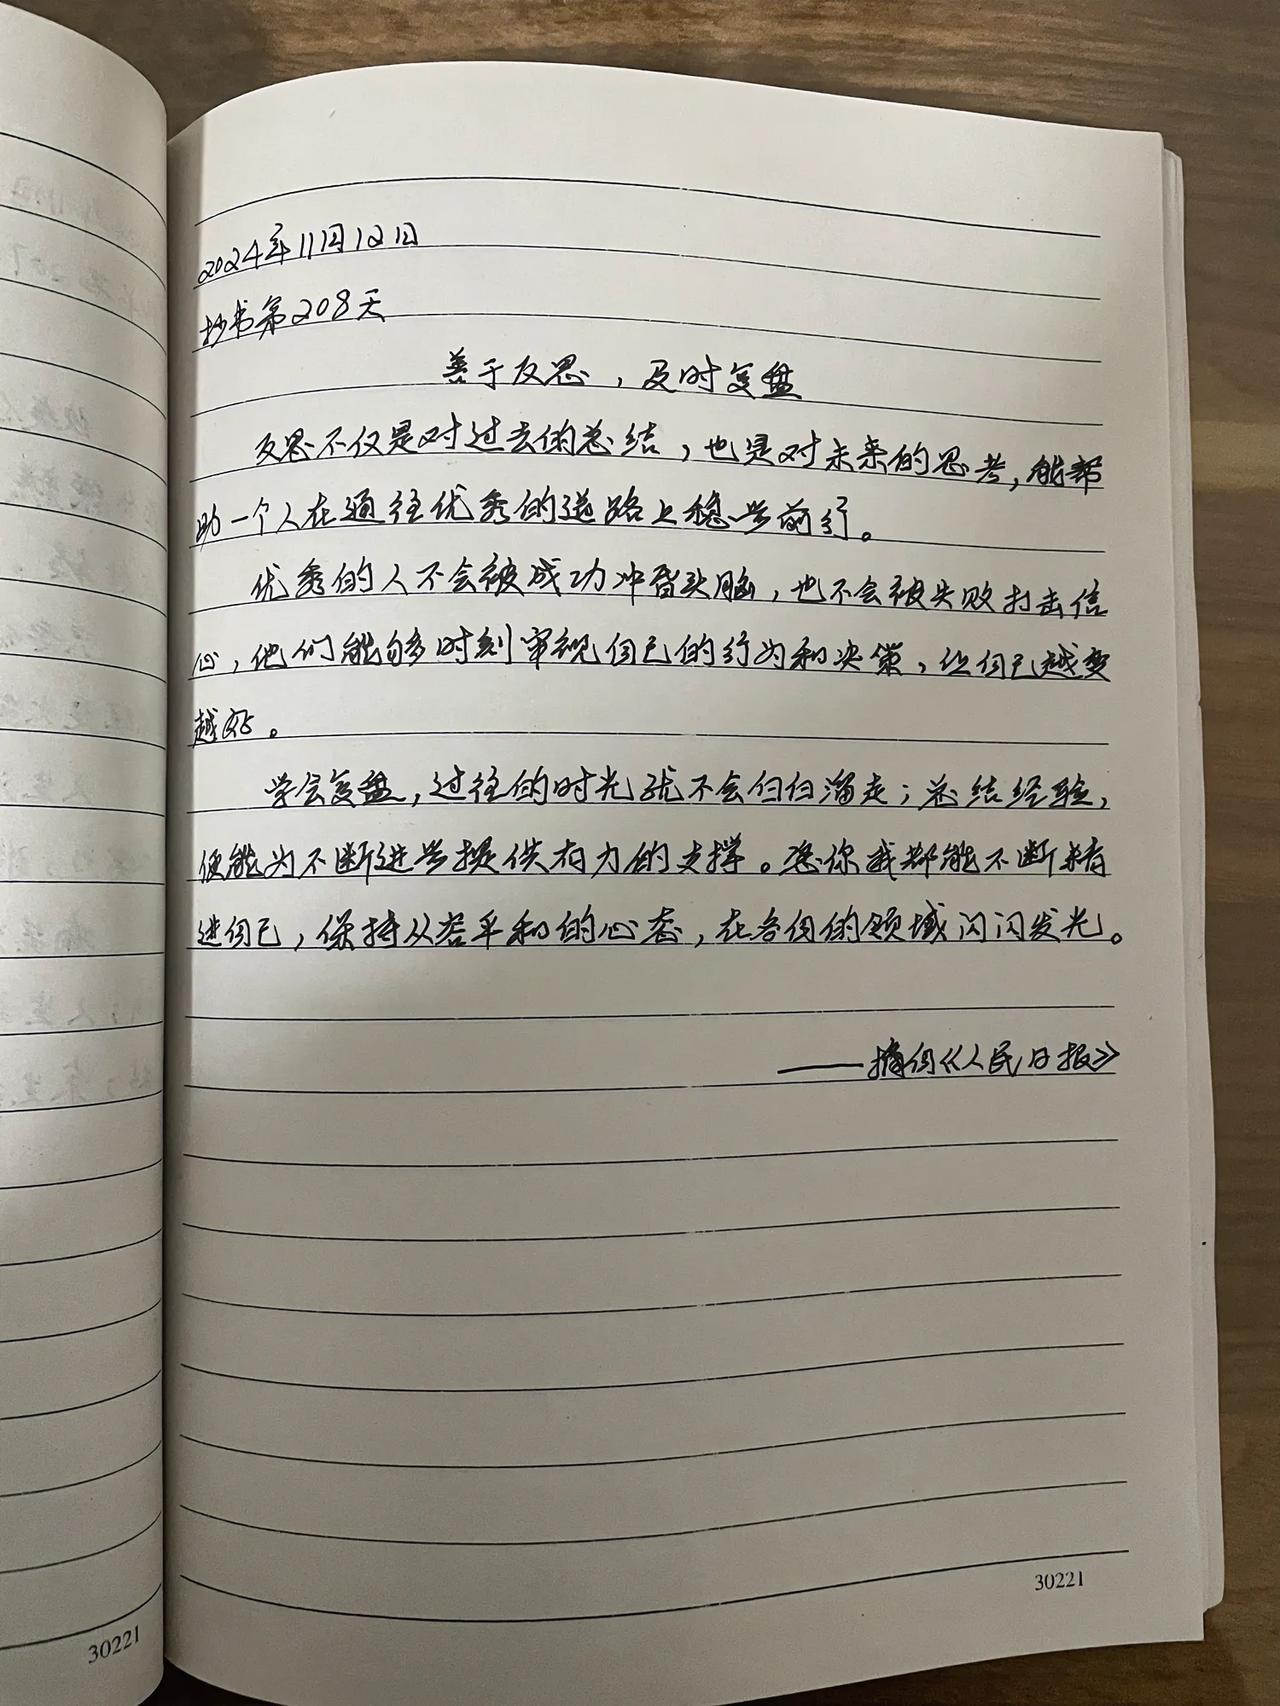 2024年11月12日
抄书第208天
善于反思，及时复盘
反思不仅是对过去的总结，也是对未来的思考，能帮
助一个人在通往优秀的道路上稳步前行。
优秀的人不会被成功冲昏头脑，也不会被失败打击信
心，他们能够时刻审视自己的行为和决策，让自己越变
越好。
学会复盘，过往的时光就不会白白溜走；总结经验，
便能为不断进步提供有力的支撑。愿你我都能不断精
进自己，保持从容平和的心态，在各自的领域闪闪发光。
——摘自《人民日报》
30221
30221